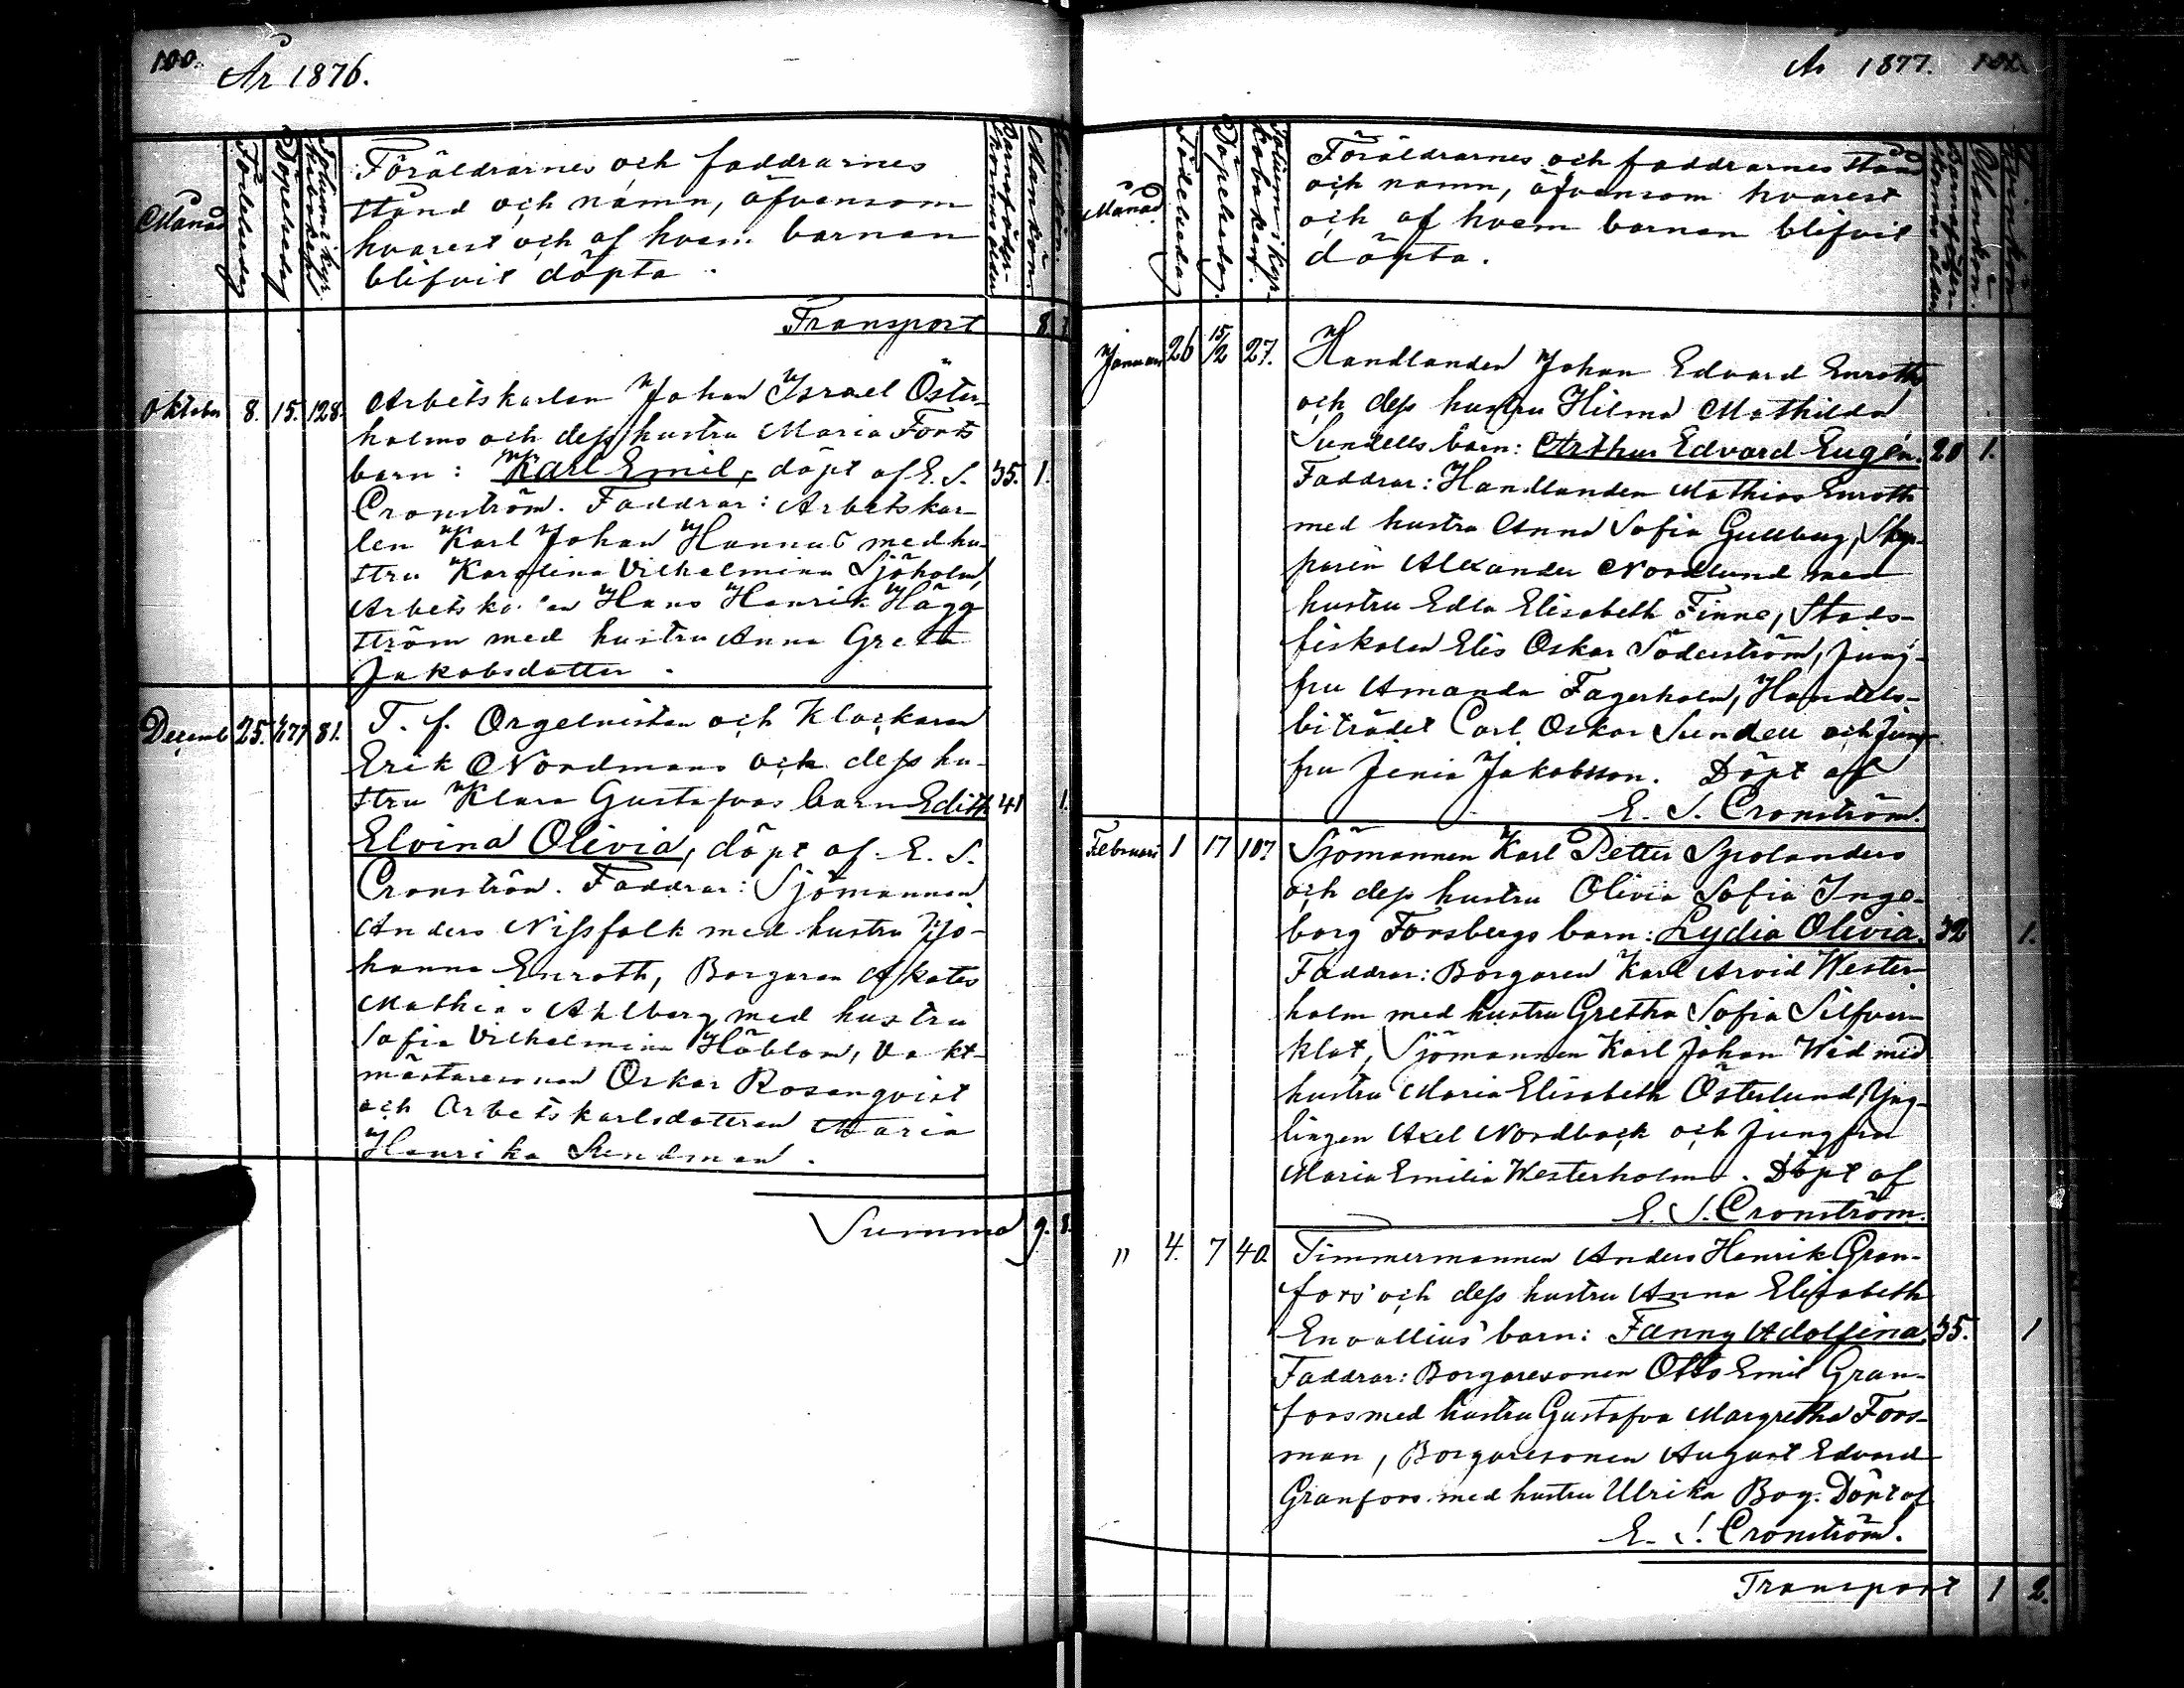 100.
År 1876.
Månad
Födelsedag
Döpelsedag
Folium i kyrkobokef.
Föräldrarnes och faddrarnes
stånd och namn, äfvensom
hvarest och af hvem barnen
blifvit döpta.
Barnaföderskornas ålder
Mankön.
Qvinkön.
Transport 8
Oktober 8. 15. 128.
Arbetskarlen Johan Israel Öster-
holms och dess hustru Maria Forss
barn: Karl Emil, döpt af E. S. 35. 1.
Cronström. Faddrar: Arbetskar-
len Karl Johan Hannus med hu-
stru Karolina Vilhelmina Sjöholm,
Arbetskarlen Hans Henrik Hägg-
ström med hustru Anna Greta
Jakobsdotter.
Decemb 25. 81.
T. f. Orgelnisten och Klockaren
Erik Nordmans och dess hu-
stru Klara Gustafvas barn Edith 41 1.
Elvina Olivia, döpt af E. S.
Cronström. Faddrar: Sjömannen
Anders Nissfolk med hustru Jo-
hanna Enroth, Borgaren
Mathias Ahlberg med hustru
Sofia Vilhelmina Höblom, Vakt-
mästaresonen Oskar Rosenqvist
och Arbetskarlsdottren Maria
Henrika Sundman.
Summa 9. 8.
År 1877.
Månad.
Födelsedag
Döpelsedag.
Folium i kyrkobokef.
Föräldrarnes och faddrarnes stånd
och namn, äfvensom hvarest
och af hvem barnen blifvit
döpta.
Mankön.
Qvinkön
Januari 26 15/2 27.
Handlanden Johan Edvard Enroths
och dess hustru Hilma Mathilda
Sundells barn: Arthur Edvard Eugén. 20 1.
Faddrar: Handlanden Mathias Enroth
med hustru Anna Sofia Gullberg, Skep-
paren Alexander Nordlund med
hustru Edla Elisabeth Finne, Stads-
fiskalen Elis Oskar Söderström, Jung-
fru Amanda Fagerholm, Handels-
biträdet Carl Oskar Sundell och Jung-
fru Jenia Jakobsson. Döpt af
E. S. Cronström.
Februari 1 17 107
Sjömannen Karl Petter Sjölanders
och dess hustru Olivia Sofia Inge-
borg Forsbergs barn: Lydia Olivia. 32 1.
Faddrar: Borgaren Karl Arvid Wester-
holm med hustru Gretha Sofia Silfver-
klot, Sjömannen Karl Johan Wid med
hustru Maria Elisabeth Österlund, Yng-
lingen Axel Nordback och Jungfru
Maria Emilia Westerholm. Döpt af
E. S. Cronström.
" 4. 7 40.
Timmermannen Anders Henrik Gran-
fors' och dess hustru Anna Elisabeth
Envallius' barn: Fanny Adolfina. 35. 1
Faddrar: Borgaresonen Otto Emil Gran-
fors med hustru Gustafva Margretha Fors-
man, Borgaresonen August Edvard
Granfors med hustru Ulrika Bog. Döpt af
E. S. Cronström.
Transport 1 2.